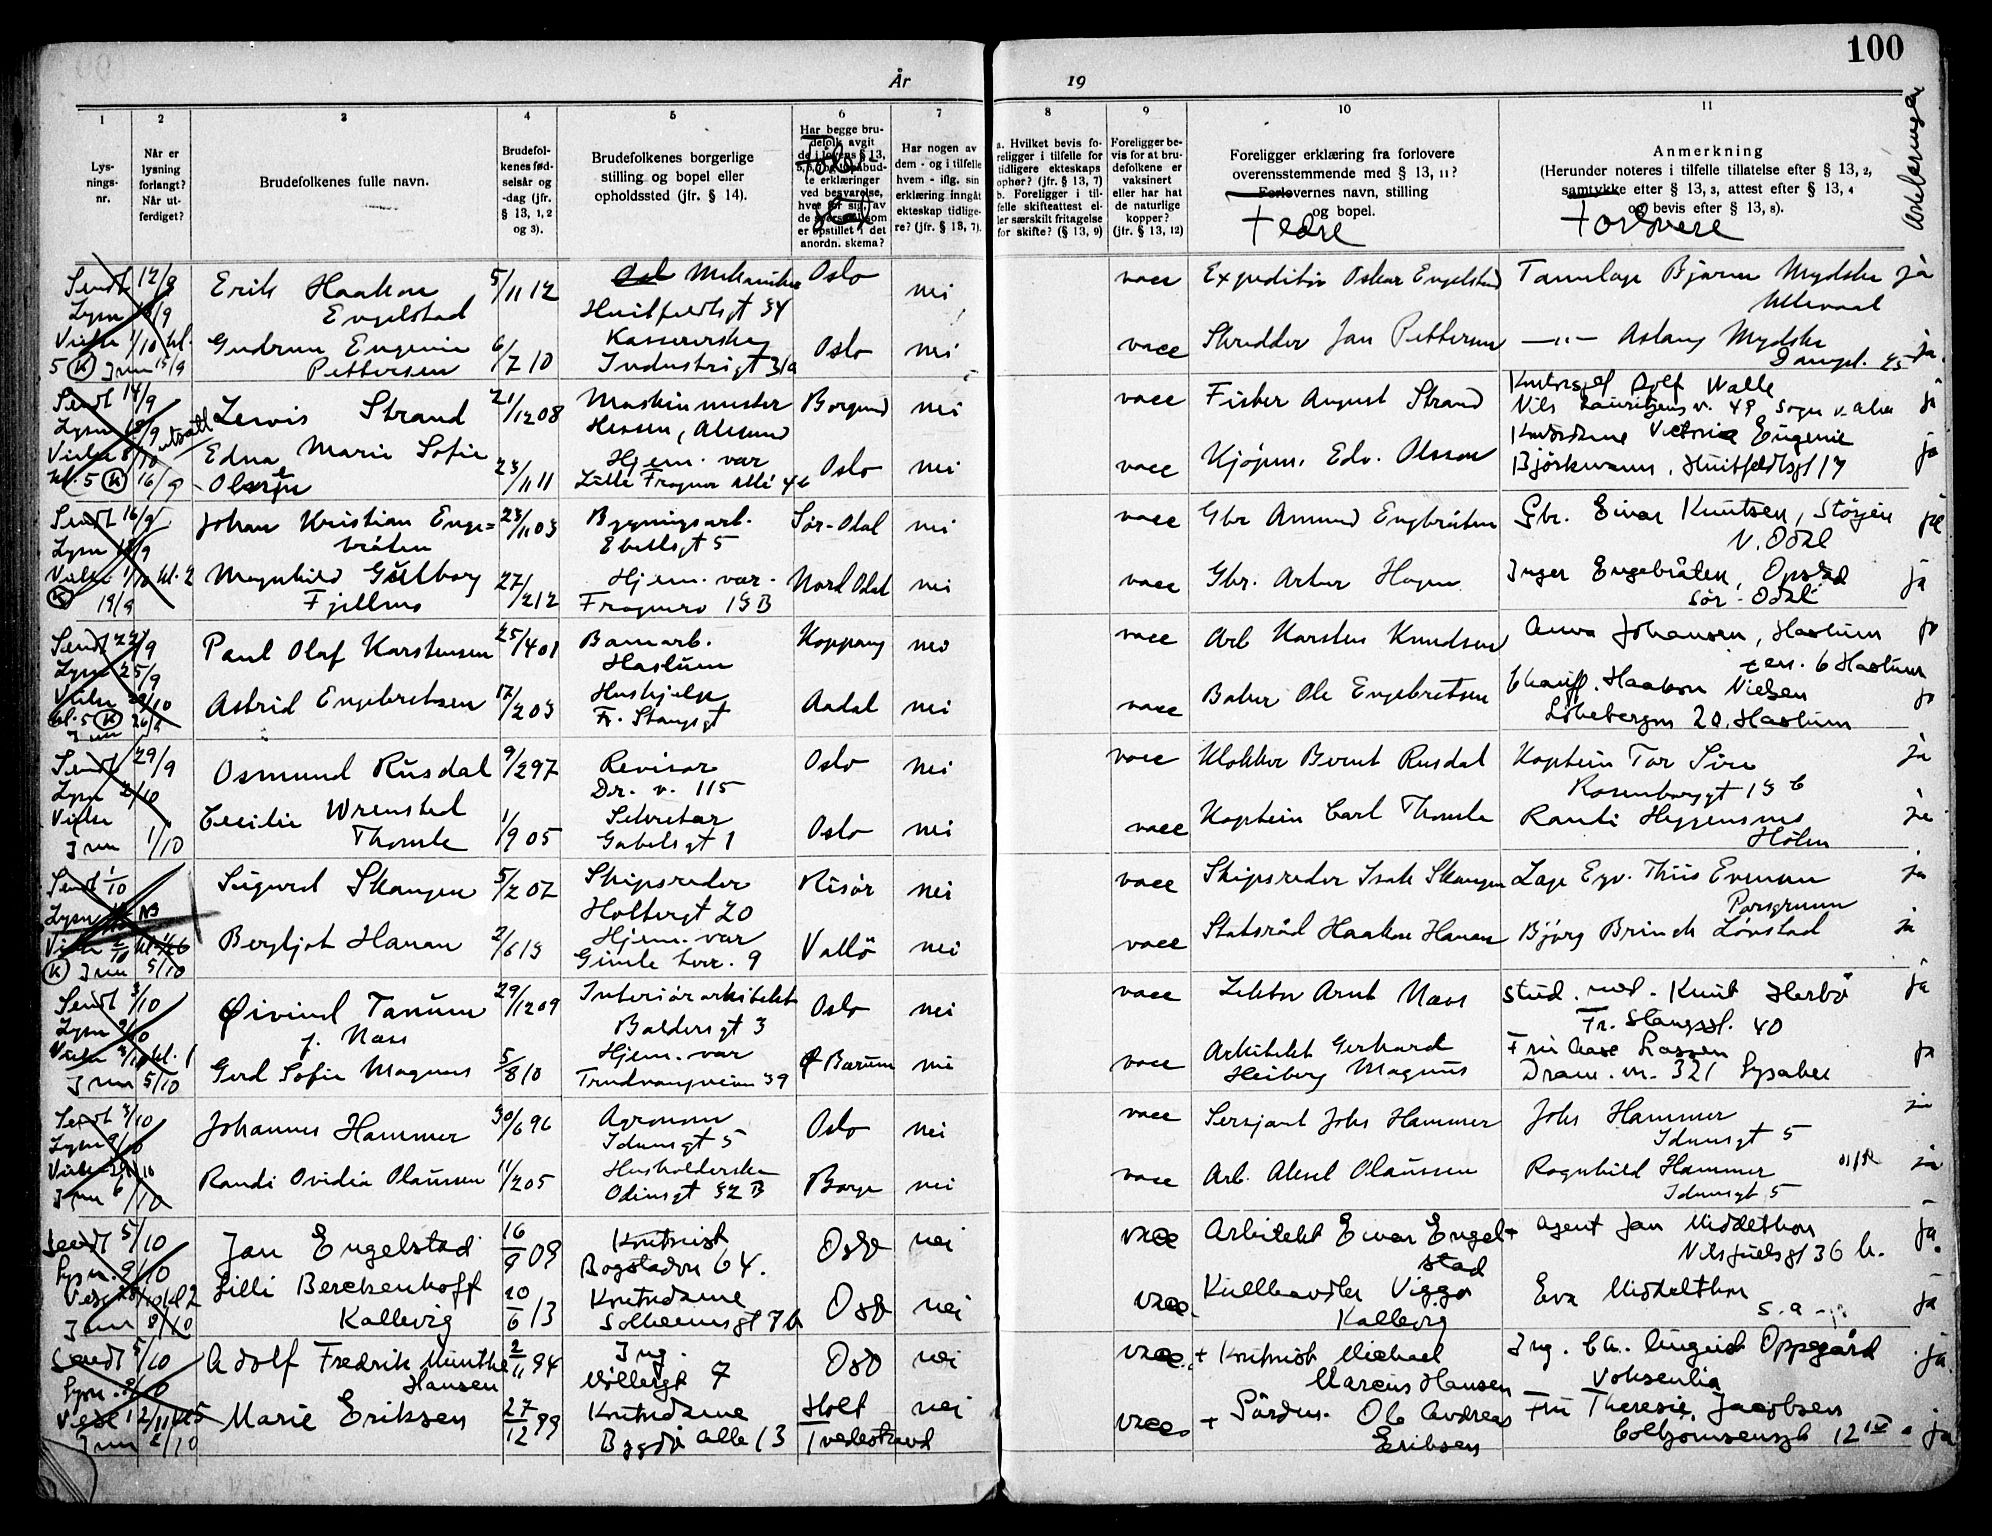 100
År
19
1
2
3
4
5
6
7
8
9
10
11
Lys-
nings-
nr.
Når er
lysning
forlangt?
Når ut-
ferdiget?
Brudefolkenes fulle navn.
Brudefol-
kenes fød-
selsår og
-dag (jfr.
§ 13, 1, 2
og 3).
Brudefolkenes borgerlige
stilling og bopel eller
opholdssted (jfr. § 14).
Har begge bru-
defolk avgit
de i lovens § 13,
te erklæringer
ved besvarelse,
hver for sig, av
de spørsmål som
er opstillet i det
anordn. skema?
Føde-
sted
Har nogen av
dem - og i tilfelle
hvem - iflg. sin
erklæring inngått
ekteskap tidlige-
re? (jfr. § 13, 7).
a. Hvilket bevis fo-
religger i tilfelle for
tidligere ekteskaps
ophør? (jfr. § 13, 7)
b. Foreligger i til-
felle skifteattest el-
ler særskilt fritagelse
for skifte? (§ 13, 9)
Foreligger be-
vis for at bru-
defolkene er
vaksinert
eller har hat
de naturlige
kopper?
(jfr. § 13, 12)
Foreligger erklæring fra forlovere
overensstemmende med § 13, 11?
Forlovernes navn, stilling
og bopel.
Fedre
Anmerkning
(Herunder noteres i tilfelle tillatelse efter § 13, 2,
samtykke efter § 13, 3, attest efter § 13, 4
og bevis efter § 13, 8).
Forlovere
Sendt 12/9 Erik Haakon 5/11 12 Mekaniker Oslo nei vacc Expeditør Oskar Engelstad Tannlæge Bjarne Mydske ja
Lysn Engelstad Huitfeldtsgt 34 Ullevaal
Vielse 1/10 kl. Gudrun Eugenie 6/7 10 Kassererske Oslo nei vacc Skredder Jan Pettersen —"— Aslaug Mydske ja.
5 (K) Jnn 15/9 Pettersen Industrigt 31a 25
Sendt 14/9 Lewis Strand 21/12 08 Maskinmester Borgund nei vacc Fisker August Strand Kontorsjef Rolf Walle ja
Lysn 18/9 utsatt Hessen, Alesund Nils Lauritzens v. 49
Vielse 8/10 Edna Marie Sofie 23/11 11 Hjem. var Oslo nei vacc Kjøpm. Edv. Olsson Kontordame Victoria Eugenie ja
kl. 5 (K) 16/9 Olsson Lille Frogner alle 4c Björkmann, Huitfeldtsgt 17
Sendt 16/9 Johan Kristian Enge= 23/11 03 Bygningsarb. Sør-Odal nei vacc Gbr Amund Engbråten Gbr. Einar Knutsen, Störjen ja
Lysn 18/9 bråten Ebbellsgt 5 N. Odal
Vielse 1/10 kl. 2 Magnhild Gulborg 27/2 12 Hjem. var. Nord Odal nei vacc Gbr. Artur Hagen Inger Engebråten, Opstad ja
(K) 19/9 Fjellmo Frognerv 19 B Sør-Odal
Sendt 22/9 Paul Olaf Karstensen 25/4 01 Banearb. Koppang nei vacc Arb Karsten Knudsen Anna Johansen, Haslum ja
Lysn 25/9 Haslum 6 Haslum
Vielse Astrid Engebretsen 17/2 03 Hushjelp Aadal nei vacc Baker Ole Engebretsen Chauff. Haakon Nielsen ja
kl. 5 (K) 26/9 Fr. Stangsgt 20, Haslum
Jnn
Sendt 29/9 Osmund Rusdal 9/2 97 Revisor Oslo nei vacc Klokker Bernt Rusdal Kaptein Tor ja
Lysn 2/10 Dr. v. 115 Rosenborggt 19 b
Vielse Cecilie Wrensted 1/9 05 Sekretær Oslo nei vacc Kaptein Carl Thomle Randi ja
Jnn 1/10 Thomle Gabelsgt 1 Hölen
Sendt 1/10 Sigurd Skaugen 5/2 07 Skipsreder Risør nei vacc Skipsreder Isak Skaugen Læge Egv. Thiis Evensen ja
Lysn NB Holbergt 20 Porsgrunn
Vielse Bergljot Hanan 2/6 13 Hjem. var Vallö nei vacc Statsråd Haakon Hanan Björg Brinch Lövstad ja
(K) Jnn 5/10 Gimle terr. 9
Sendt 3/10 Øivind Tanum 29/12 09 Interiørarkitekt Oslo nei vacc Lektor Arnt Næss Stud. med. Knut Herbö ja
Lysn 9/10 f. Næss Baldersgt 3 Fr. Stangsgt. 40
Vielse kl. 1 Gerd Sofie Magnus 5/8 10 Hjem. var Bærum nei vacc Arkitekt Gerhard Fru Aase Lassen ja
Jnn 5/10 Trudvangveien 39 Heiberg Magnus Dram. vn. 321 Lysaker
Sendt 3/10 Johannes Hammer 30/6 96 Agronom Oslo nei vacc Sersjant Johs Hammer Johs Hammer ja
Lysn 9/10 Idunsgt 5 Idunsgt 5
Vielse Randi Ovidia Olaussen 11/2 05 Husholderske Borge nei vacc Arb. Aksel Olaussen Ragnhild Hammer ja
Jnn 6/10 Odinsgt 32 B Idunsgt 5
Sendt 5/10 Jan Engelstad 16/9 09 Kontorist Oslo nei vacc Arkitekt Einar Engel- Agent Jan Middelthon ja.
Lysn. 9/10 Bogstadvn 64. stad Nils Juelsgt 36 b.
Vielse kl 2 Lilli Berckenhoff 20/6 13 Kontordame Oslo nei vacc. Kullhandler Viggo Eva Middelthon ja
Jnn 8/10 Kallevig Solheimsgt 7b Kallevig s.a
Sendt 5/10 Adolf Fredrik Munthe 2/11 94 Ing. Oslo nei vacc. + Kontorist Michael Ing. Chr. August Oppegård ja.
Lysn. 9/10 Hansen Möllergt 7 Marcus Hansen Voksenlia
Vielse 12/11 kl 5 Marie Eriksen 27/12 99 Kontordame Holt nei vacc. + Gårdbr. Ole Andreas Fru Theresie Jacobsen ja
Jnn 2/10 Bygdø alle 13 Tvedestrand Eriksen Colbjørnsensgt 12 IV